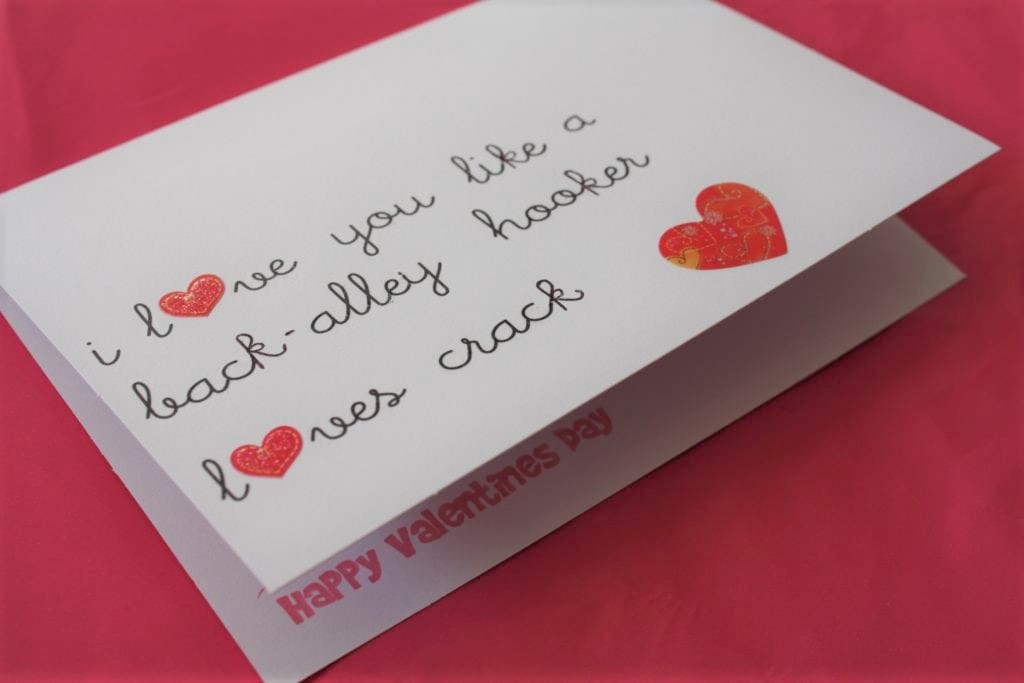 i love you like a
back-alley hooker
loves crack
Happy Valentines Day